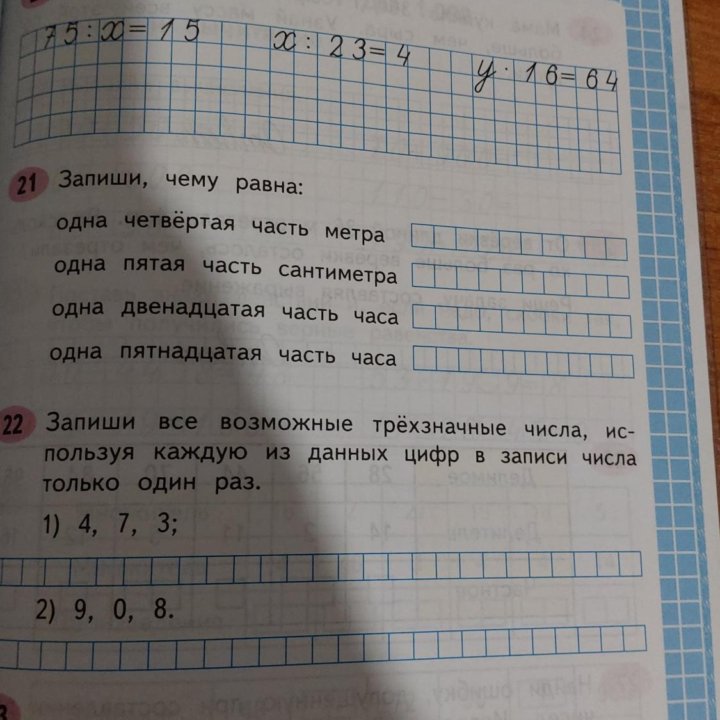 75 : x = 15 x : 23 = 4 y · 16 = 64
21 Запиши, чему равна:
одна четвёртая часть метра
одна пятая часть сантиметра
одна двенадцатая часть часа
одна пятнадцатая часть часа
22 Запиши все возможные трёхзначные числа, ис-
пользуя каждую из данных цифр в записи числа
только один раз.
1) 4, 7, 3;
2) 9, 0, 8.
3